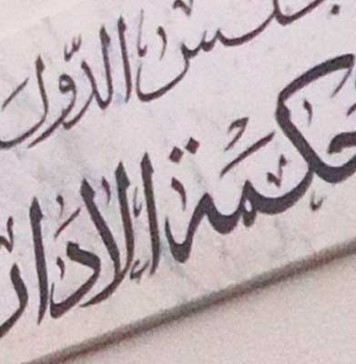 جلس الدّول
حكمة الادار